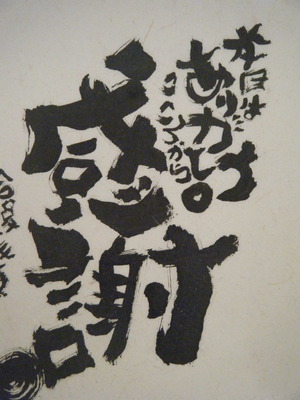 本日は
ありがとう。
ココロから
感謝